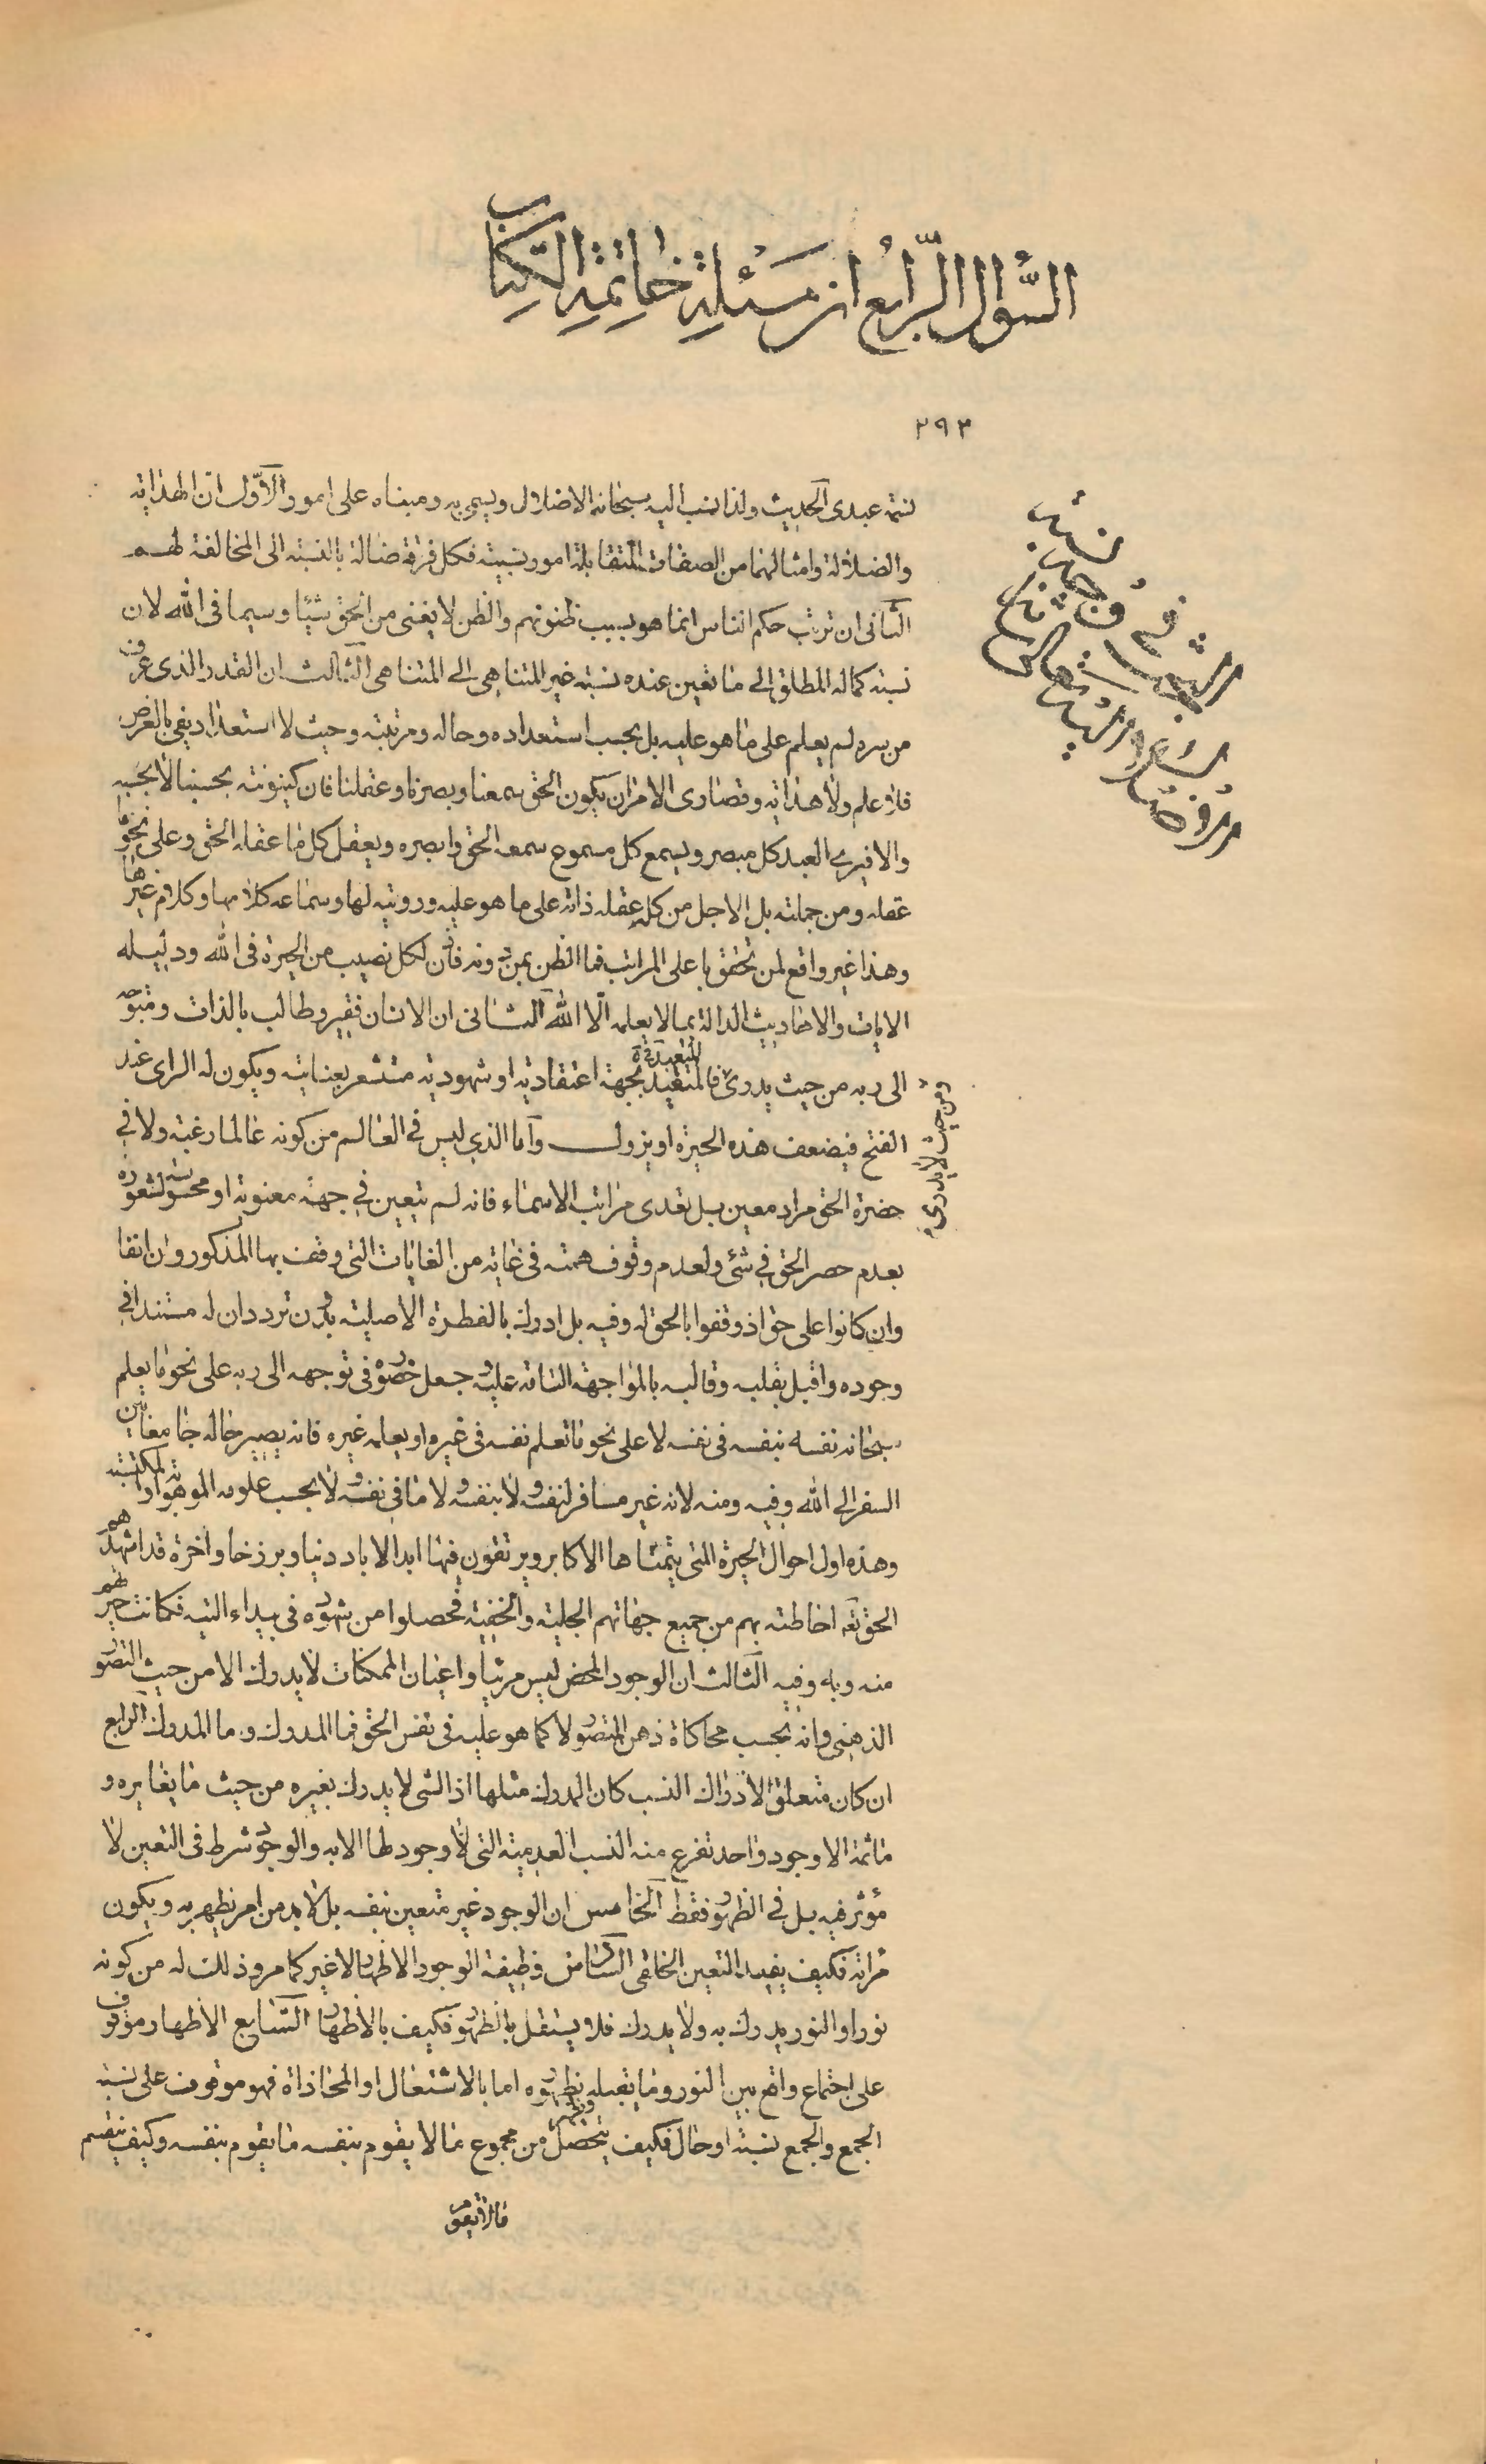 السّؤال الرّابع از مسئلة خاتمة الكتاب
٢٩٣
شتمنى عبدى الحديث ولذا نسب اليه سبحانه الاضلال ويسمى به ومبناه على امور الأوّل ان الهداية
والضلالة وامثالهما من الصفات المتقابلة امور نسبية فكل فرقة ضالة بالنسبة الى المخالفة لهم
الثانى ان ترتب حكم الناس انما هو بسبب ظنونهم والظن لا يغنى من الحق شيئا وسيما فى الله لان
نسبة كماله المطلق الى ما تعين عنده نسبة غير المتناهى الى المتناهى الثالث ان القدر الذى عرف
من سره لم يعلم على ما هو عليه بل بحسب استعداده وحاله ومرتبته وحيث لا استعداد يفى بالغرض
فلا علم ولا هداية وقصارى الامر ان يكون الحق سمعنا وبصرنا وعقلنا فان كينونته بحسبنا لا بحسبه
والا فيرى العبد كل مبصر ويسمع كل مسموع سمعه الحق وابصره ويعقل كل ما عقله الحق وعلى نحو ما
عقله ومن جملته بل الاجل من كله عقله ذاته على ما هو عليه ورويته لها وسماعه كلامها وكلام غيرها
وهذا غير واقع لمن تحقق باعلى المراتب فما الظن بمن دونه فان لكل نصيب من الحيرة فى الله ودليله
الايات والاحاديث الدالة بما لا يعلمه الّا الله الثانى ان الانسان فقير وطالب بالذات ومتوجه
الى ربه من حيث يدرى فالمتقيد بجهة اعتقادية او شهودية مستشعر بعنايته ويكون له الراى عند
ومن حيث لا يدرى
الفتح فيضعف هذه الحيرة او يزول واما الذى ليس فى العالم من كونه عالما رغبة ولا فى
حضرة الحق مراد معين بل تعدى مراتب الاسماء فانه لم يتعين فى جهة معنوية او محسوسة لشعوره
بعدم حصر الحق فى شئ ولعدم وقوف همته فى غاية من الغايات التى وقف بها المذكوروان انفا
وان كانوا على حق اذ وقفوا بالحق له وفيه بل ادرك بالفطرة الاصلية بدون تردد ان له مستندا فى
وجوده واقبل بقلبه وقالبه بالمواجهة التامة عليه وجعل حضوره فى توجهه الى ربه على نحو ما يعلم
سبحانه نفسه بنفسه فى نفسه لا على نحو ما تعلم نفسه فى غيره او يعلمه غيره فانه يصير حاله جامعا بين
السفر الى الله وفيه ومنه لانه غير مسافر لنفسه ولا بنفسه ولا ما فى نفسه ولا بحسب علومه الموهوبة او المكتسبة
وهذه اول احوال الحيرة التى يتمناها الاكابر ويرتقون فيها ابد الاباد دنيا وبرزخا واخرة قد اشهدهم
الحق تعه احاطته بهم من جميع جهاتهم الجلية والخفية فحصلوا من شهوده فى بيداء التيه فكانت حيرتهم
منه وبه وفيه الثالث ان الوجود المحض ليس مرئيا واعيان الممكنات لا يدرك الا من حيث التصور
الذهنى وانه بحسب محاكاة ذهن المتصور لا كما هو عليه فى نفس الحق فما المدرك وما المدرك الرابع
ان كان متعلق الادراك النسب كان المدرك مثلها اذ الشى لا يدرك بغيره من حيث ما يغايره و
ما ثمة الا وجود واحد تفرع منه النسب العدمية التى لا وجود لها الا به والوجود شرط فى التعين لا
مؤثر فيه بل فى الظهور فقط الخامس ان الوجود غير متعين بنفسه بل لا بد من امر يظهر به ويكون
مراته فكيف يفيد التعين الخلقى السادس وظيفة الوجود الاظهار لا غير كما مر وذلك له من كونه
نورا والنور يدرك به ولا يدرك فلا يستقل بالظهور فكيف بالاظهار السّابع الاظهار موقوف
على اجتماع واقع بين النور وما يقبله بظهوره اما بالاشتغال او المحاذاة فهو موقوف على نسبة
الجمع والجمع نسبة او حال فكيف يتحصل من مجموع ما لا يقوم بنفسه ما يقوم بنفسه وكيف ينقسم
ما لا يقوم